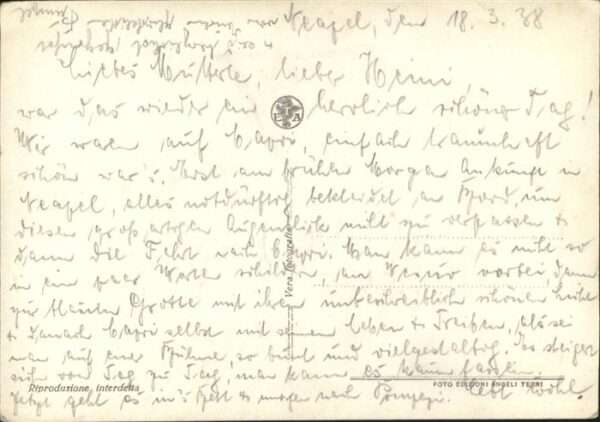 Neapel, den 18.3.38
Liebes Mutterle, lieber Heini,
war das wieder ein herrlich schöner Tag!
Wir waren auf Capri, einfach traumhaft
schön war's. Erst am frühen Morgen Ankunft in
Neapel, alles notdürftig bekleidet an Bord, um
diesen großartigen Augenblick nicht zu verpassen &
dann die Fahrt nach Capri. Man kann es nicht so
in ein paar Worten schildern, am Vesuv vorbei, dann
zur blauen Grotte mit ihrem unbeschreiblich schönen Licht
& danach Capri selbst mit seinem Leben & Treiben, als sei
man auf einer Bühne, so bunt und vielgestaltig. Es steigert
sich von Tag zu Tag, man kann es kaum fassen.
Jetzt geht es in's Bett & morgen nach Pompeji. Lebt wohl
EA
Vera fotografia
Riproduzione interdetta
FOTO EDIZIONI ANGELI TERNI